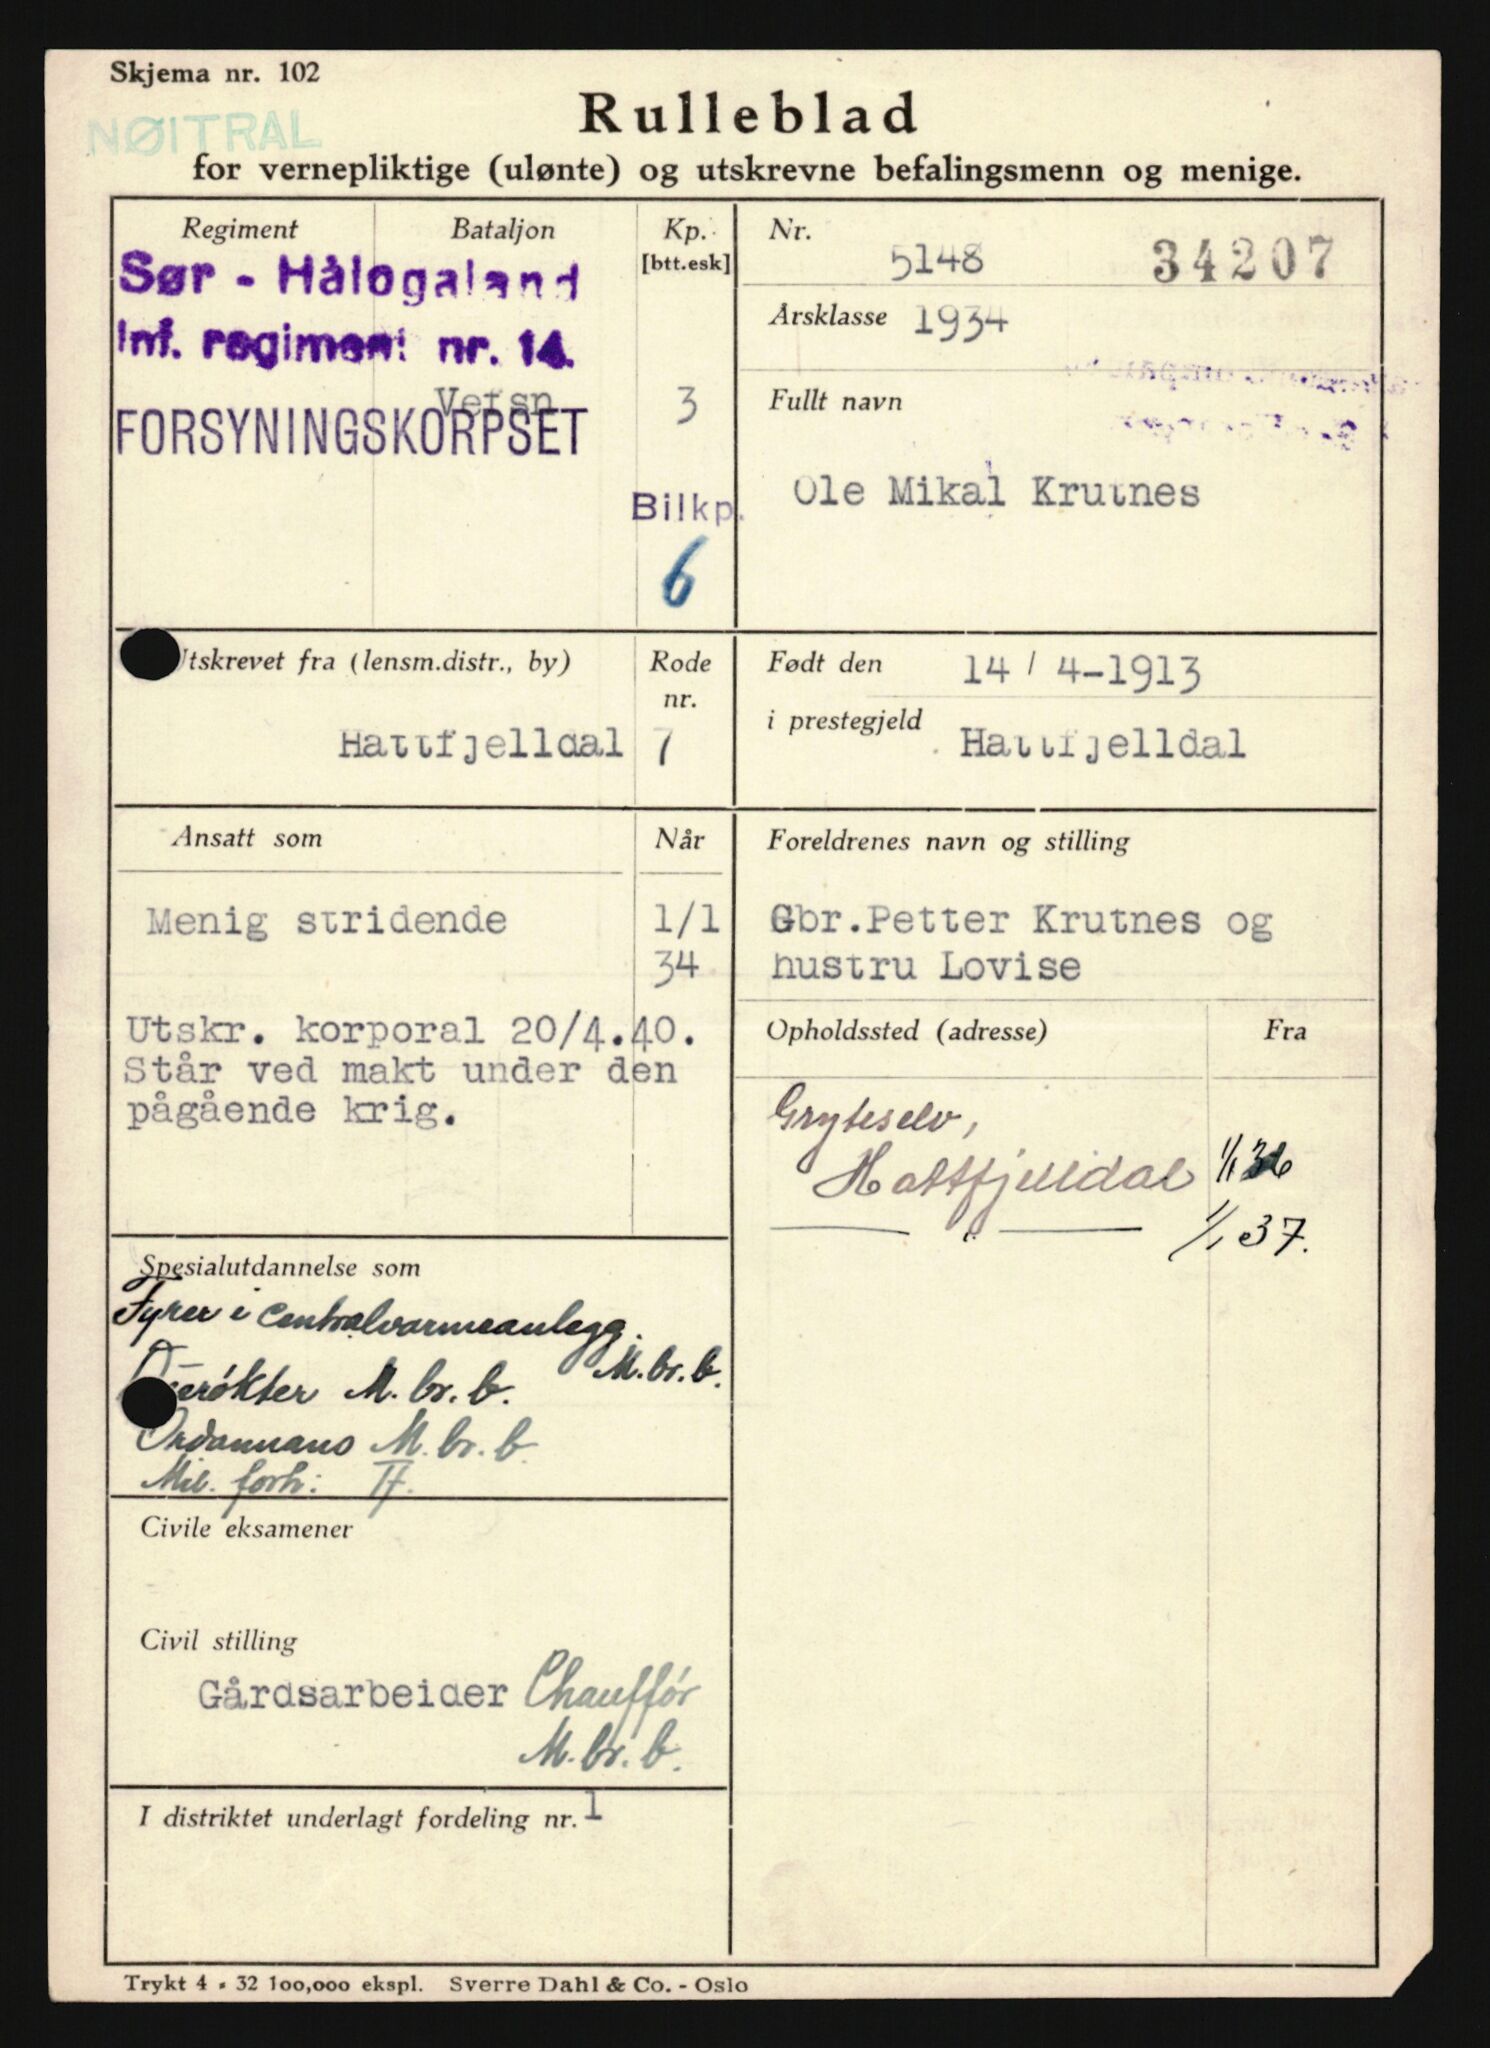 Skjema nr. 102
NØITRAL
Rulleblad
for vernepliktige (ulønte) og utskrevne befalingsmenn og menige.
Regiment Bataljon Kp. [btt.esk]
Sør - Hålogaland
Inf. regiment nr. 14.
Vefsn 3
FORSYNINGSKORPSET
Bilkp.
6
Nr. 5148 34207
Årsklasse 1934
Fullt navn
Ole Mikal Krutnes
Utskrevet fra (lensm.distr., by) Rode nr.
Hattfjelldal 7
Født den 14 / 4-1913
i prestegjeld Hattfjelldal
Ansatt som Når
Menig stridende 1/1
34
Utskr. korporal 20/4.40.
Står ved makt under den
pågående krig.
Foreldrenes navn og stilling
Gbr.Petter Krutnes og
hustru Lovise
Opholdssted (adresse) Fra
Gryteselv,
Hattfjelldal 1/1 36
1/1 37.
Spesialutdannelse som
Fyrer i centralvarmeanlegg.
M.br.b.
M.br.b.
Ordonnans M.br.b.
Mil. forh: II.
Civile eksamener
Civil stilling
Gårdsarbeider Chauffør
M.br.b.
I distriktet underlagt fordeling nr. 1
Trykt 4 - 32 100,000 ekspl. Sverre Dahl & Co. - Oslo